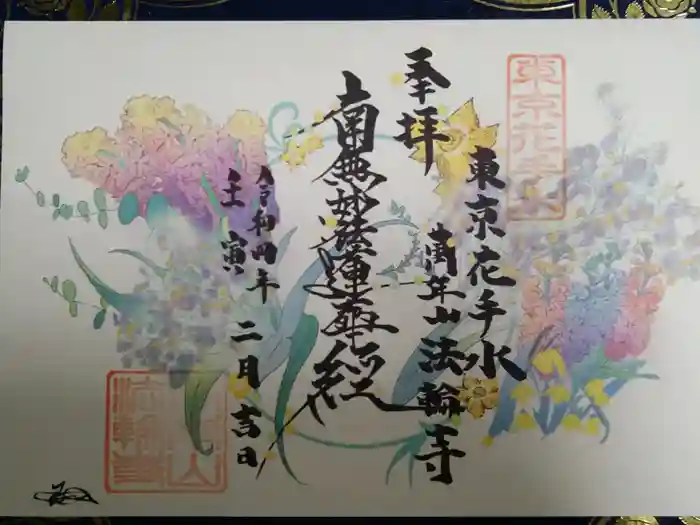 奉拝
東京花手水
東京花手水
萬年山法輪寺
南無妙法蓮華経
令和四年
壬寅
二月吉日